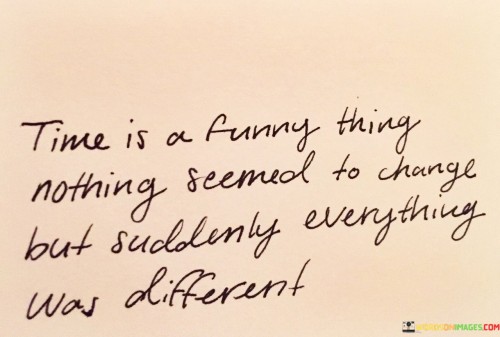 Time is a funny thing
nothing seemed to change
but suddenly everything
was different